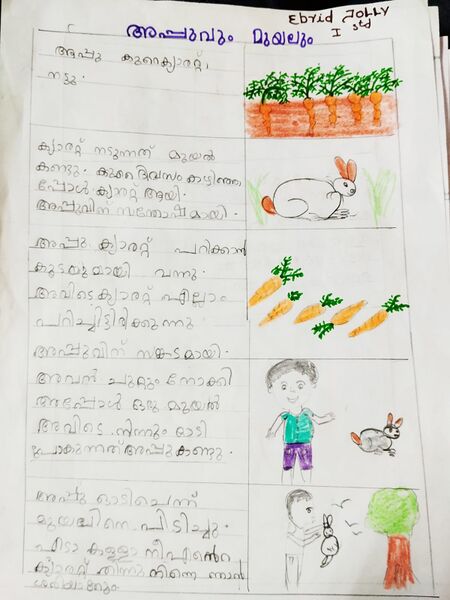 Ebrid JOLLY
I std
അപ്പുവും മുയലും
അപ്പു കുറെക്യാരറ്റ്
നട്ടു.
ക്യാരറ്റ് നടുന്നത് മുയൽ
കണ്ടു. കുറെദിവസം കഴിഞ്ഞ
പ്പോൾ ക്യാരറ്റ് ആയി.
അപ്പുവിന് സന്തോഷമായി.
അപ്പു ക്യാരറ്റ് പറിക്കാൻ
കൂടയുമായി വന്നു.
അവിടെക്യാരറ്റ് എല്ലാം
പറിച്ചിട്ടിരിക്കുന്നു.
അപ്പുവിന് സങ്കടമായി.
അവൻ ചുറ്റും നോക്കി
അപ്പോൾ ഒരു മുയൽ
അവിടെ നിന്നും ഓടി
പോകുന്നത്അപ്പുകണ്ടു.
അപ്പു ഓടിചെന്ന്
മുയലിനെ പിടിച്ചു.
എടാ കള്ളാ നീഎന്റെ
ക്യാരറ്റ് തിന്നു നിന്നെ ഞാൻ